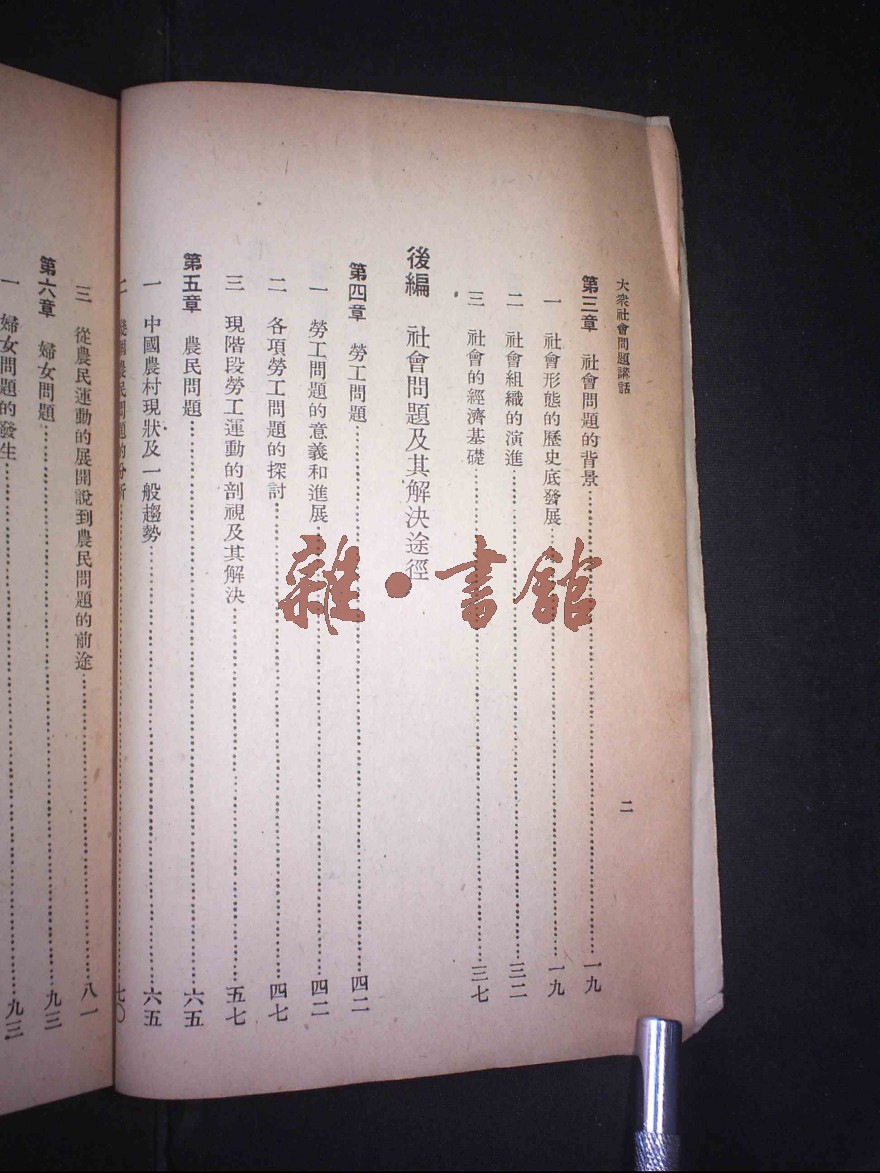 大衆社會問題講話
二
第三章 社會問題的背景……一九
一 社會形態的歷史底發展……一九
二 社會組織的演進……三二
三 社會的經濟基礎……三七
後編 社會問題及其解決途徑
第四章 勞工問題……四二
一 勞工問題的意義和進展……四二
二 各項勞工問題的探討……四七
三 現階段勞工運動的剖視及其解決……五七
第五章 農民問題……六五
一 中國農村現狀及一般趨勢……六五
二 幾個農民問題的分析……七〇
三 從農民運動的展開說到農民問題的前途……八一
第六章 婦女問題……九三
一 婦女問題的發生……九三
雜·書館